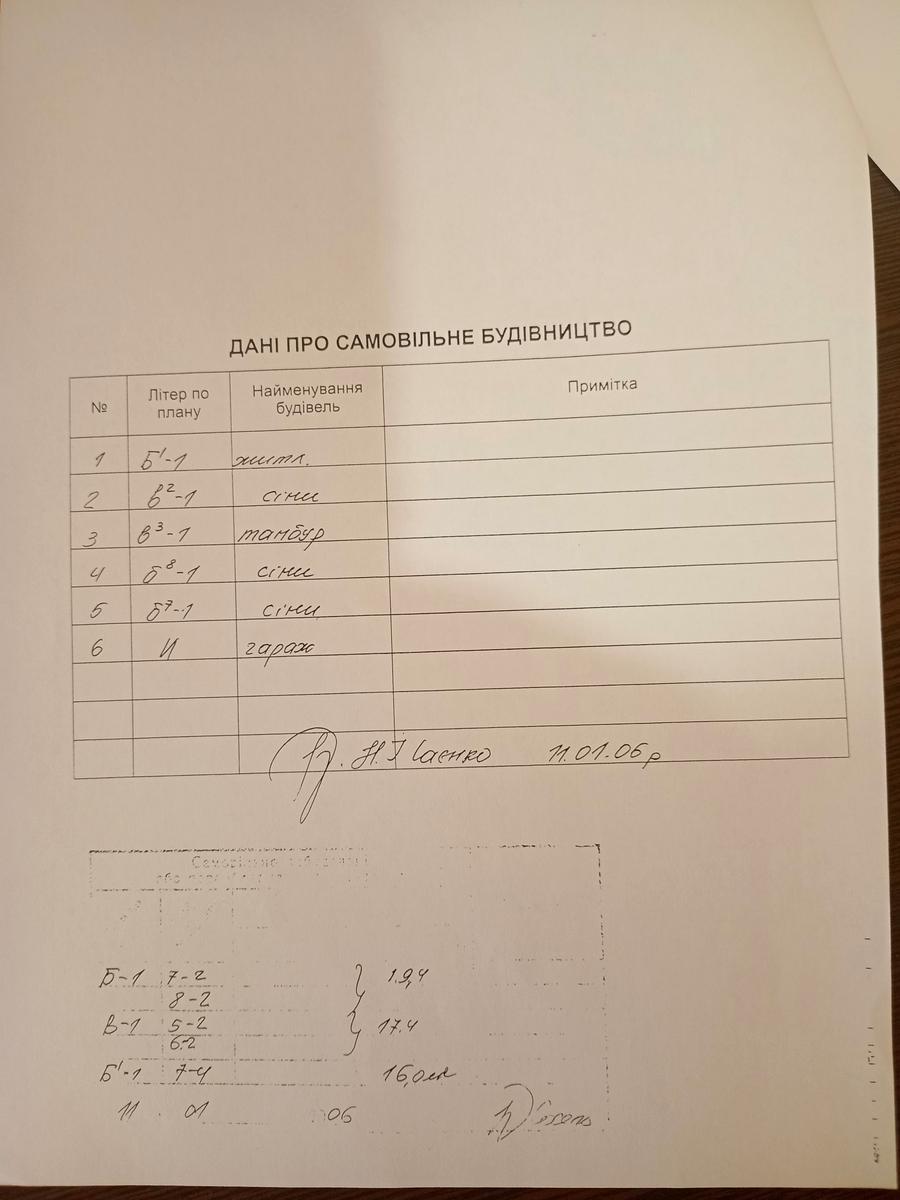 ДАНІ ПРО САМОВІЛЬНЕ БУДІВНИЦТВО
№ Літер по плану Найменування будівель Примітка
1 Б'-1 житл.
2 в²-1 сіни
3 в³-1 тамбур
4 б⁸-1 сіни
5 б⁷-1 сіни
6 И гараж
Н. Ісаєнко 11.01.06р
Самовільне
або
Б-1 7-2 19,4
8-2
В-1 5-2 17.4
6-2
Б'-1 7-4 16,0
11 01 06